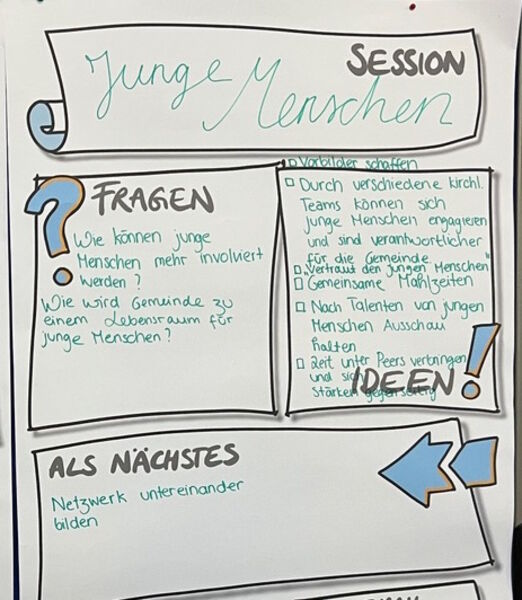 SESSION
Junge
Menschen
FRAGEN
Wie können junge
Menschen mehr involviert
werden ?
Wie wird Gemeinde zu
einem Lebensraum für
junge Menschen?
Vorbilder schaffen
Durch verschiedene kirchl.
Teams können sich
junge Menschen engagieren
und sind verantwortlicher
für die Gemeinde
"Vertraut den jungen Menschen"
Gemeinsame Mahlzeiten
Nach Talenten von jungen
Menschen Ausschau
halten
Zeit unter Peers verbringen
und sich
stärken gegenseitig
IDEEN!
ALS NÄCHSTES
Netzwerk untereinander
bilden